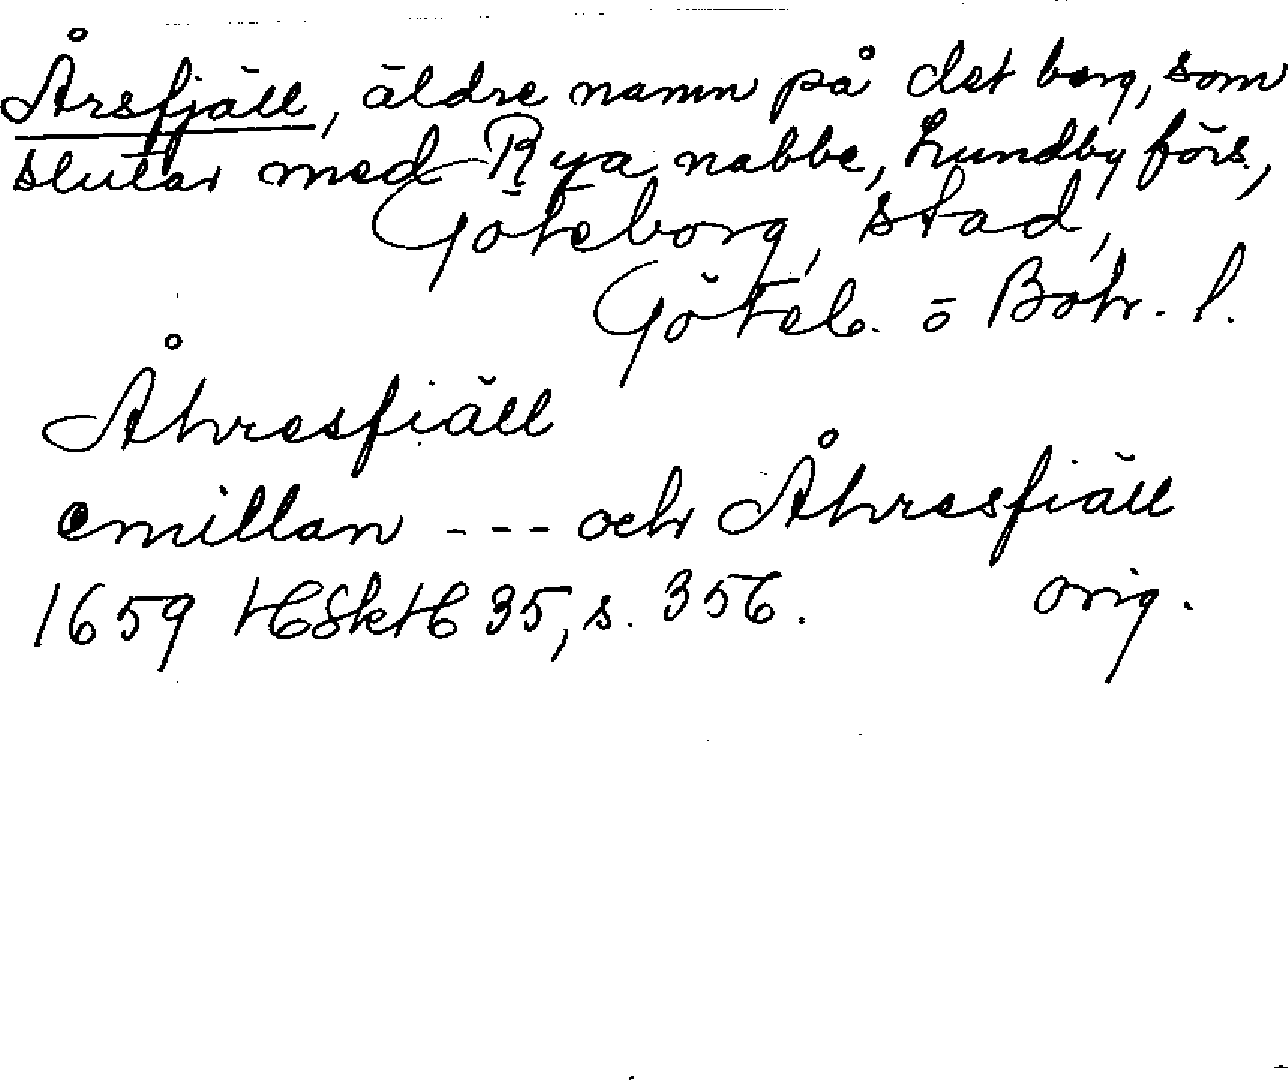 Årsfjäll, äldre namn på det berg, som
slutar med Rya nabbe, Lundby förs.,
Göteborg, stad,
Göteb. o Boh. l.
Åhresfiäll
emillan --- och Åhresfiäll
1659 HSkH 35, s. 356. orig.